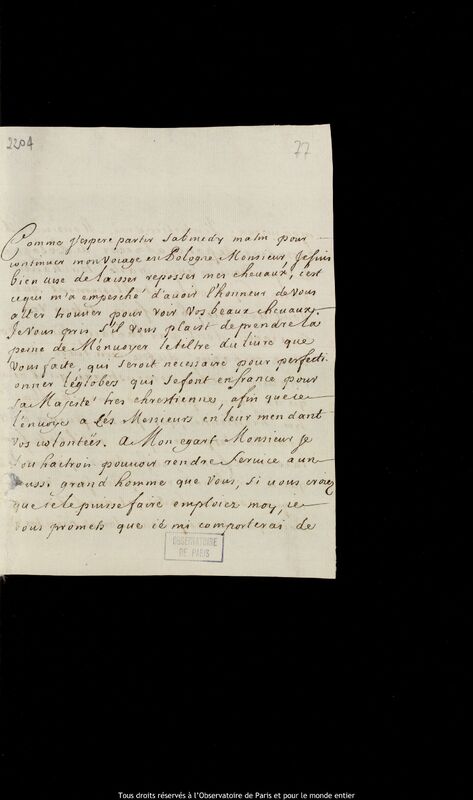 2204
77
Comme j'espere partir sabmedy matin pour
continuer mon voiage en Pologne Monsieur, Je suis
bien aise de laisser reposser mes chevaux, c'est
ce qui m'a empesché d'avoir l'honneur de vous
aller trouver pour voir vos beaux chevaux.
Je vous pris s'il vous plaist de prendre la
peine de M'envoyer le tiltre du livre que
Vous faite, qui seroit necessaire pour perfecti
onner le globes qui se font en france pour
sa Majesté tres chrestienne, afin que ie
l'envoye a Les Messieurs en leur mendant
vos volontées. A Mon egart Monsieur Je
souhaitrou pouvoir rendre service a un
aussi grand homme que vous, si vous croiez
que ie le puisse faire emploiez moy, ie
vous promets que ie mi comporterai de
OBSERVATOIRE
DE PARIS
Tous droits réservés à l'Observatoire de Paris et pour le monde entier